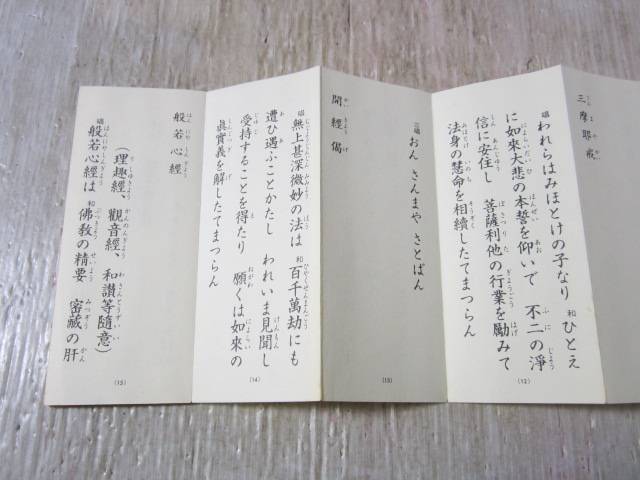 三摩耶戒
唱われらはみほとけの子なり 和ひとえ
に如來大悲の本誓を仰いで 不二の淨
信に安住し 菩薩利他の行業を勵みて
法身の慧命を相續したてまつらん
(12)
三唱 おん さんまや さとばん
(13)
開經偈
唱無上甚深微妙の法は 和百千萬劫にも
遭ひ遇ふことかたし われいま見聞し
受持することを得たり 願くは如來の
眞實義を解したてまつらん
(14)
般若心經
(理趣經、觀音經、和讃等隨意)
唱般若心經は 和佛敎の精要 密藏の肝
(15)